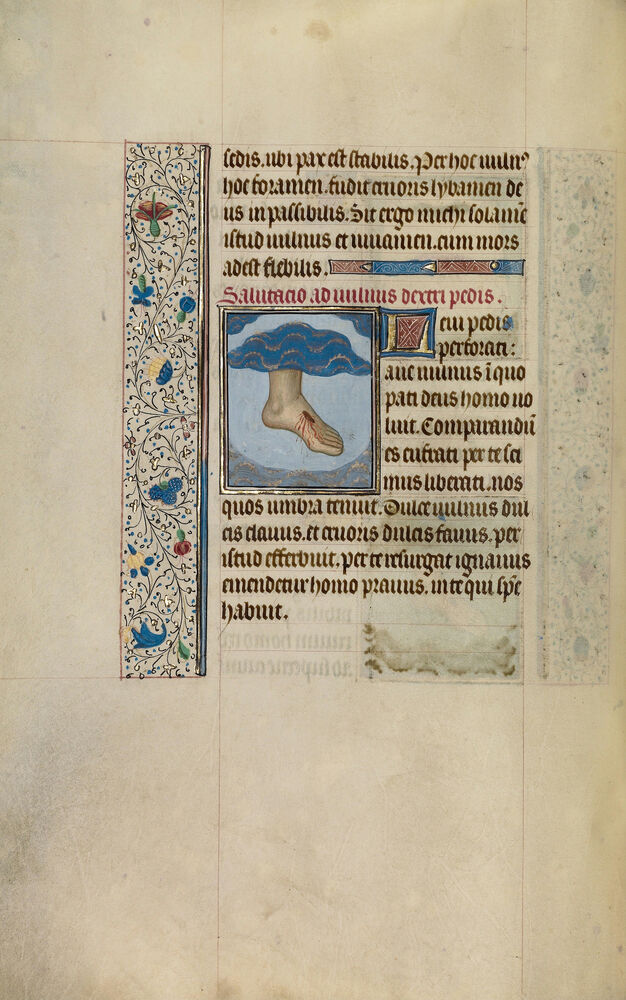 sedis. ubi pax est stabilis. Per hoc vuln᾽
hoc foramen. fudit cruoris lybamen de
us inpassibilis. Sit ergo michi solamē
istud vulnus et iuuamen. cum mors
adest flebilis.
Salutacio ad vulnus dextri pedis.
Dextri pedis
perforati:
aue vulnus ī quo
pati deus homo uo
luit. Comparandū
es cu᷒rati per te sci
mus liberati. nos
quos umbra tenuit. Dulce vulnus dul
cis clauus. et cruoris dulcis fauus. per
istud efferbuit. per te resurgat ignauus
emendetur homo prauus. in te qui spē
habuit.